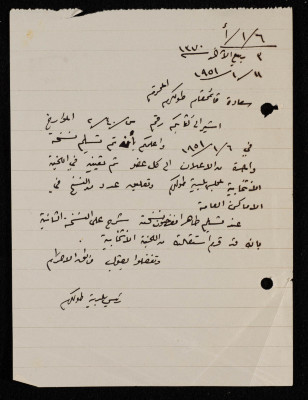 ٦/١/أ
٣ ربيع الآخر ١٣٧٠
١١/١/١٩٥١
سعادة قائمقام طولكرم المحترم
استير الى كتابكم رقم س/٦٠/٢ المؤرخ
في ٦/١/١٩٥١ واعلمكم بأنه تم تسليم نسخة
واحدة من الاعلان الى كل عضو تم تعيينه في اللجنة
الانتخابية لمجلس بلدية طولكرم وتعليق عدد من النسخ في
الاماكن العامة
عند تسليم طاهر نسخة شرح على النسخة الثانية
بانه قد قدم استقالته من اللجنة الانتخابية .
وتفضلوا بقبول فائق الاحترام
رئيس بلدية طولكرم